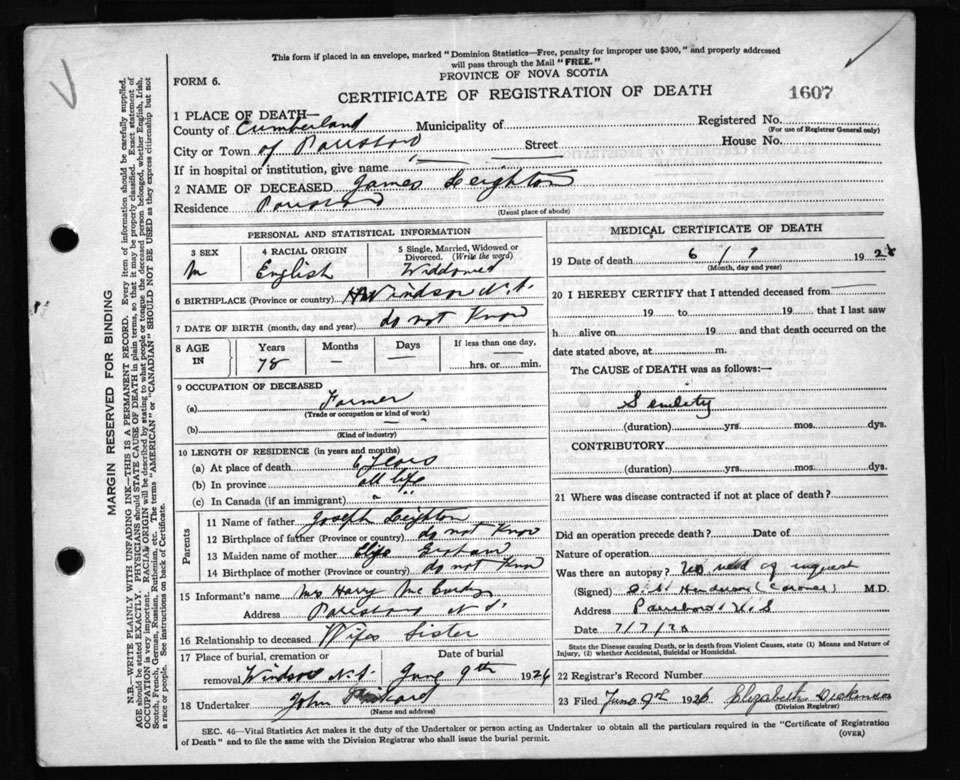 This form if placed in an envelope, marked "Dominion Statistics—Free, penalty for improper use $300," and properly addressed
will pass through the Mail "FREE."
PROVINCE OF NOVA SCOTIA
FORM 6.
CERTIFICATE OF REGISTRATION OF DEATH
1607
1 PLACE OF DEATH—
County of Cumberland Municipality of Registered No.
(For use of Registrar General only)
City or Town of Street House No.
If in hospital or institution, give name
2 NAME OF DECEASED James Leighton
Residence
(Usual place of abode)
PERSONAL AND STATISTICAL INFORMATION
3 SEX 4 RACIAL ORIGIN 5 Single, Married, Widowed or Divorced. (Write the word)
M English Widdowed
6 BIRTHPLACE (Province or country) Windsor N.S.
7 DATE OF BIRTH (month, day and year) do not Know
8 AGE IN Years Months Days If less than one day,
78 — — hrs. or min.
9 OCCUPATION OF DECEASED
(a) Farmer
(Trade or occupation or kind of work)
(b)
(Kind of industry)
10 LENGTH OF RESIDENCE (in years and months)
(a) At place of death 6 Years
(b) In province all life
(c) In Canada (if an immigrant) " "
Parents
11 Name of father Joseph Leighton
12 Birthplace of father (Province or country) do not Know
13 Maiden name of mother
14 Birthplace of mother (Province or country) do not Know
15 Informant's name Mrs Harry
Address N.S.
16 Relationship to deceased Wifes Sister
17 Place of burial, cremation or removal Windsor N.S. Date of burial June 9th 1926
18 Undertaker John
(Name and address)
MEDICAL CERTIFICATE OF DEATH
19 Date of death 6 / 7 19
(Month, day and year)
20 I HEREBY CERTIFY that I attended deceased from
19 to 19 that I last saw
h alive on 19 and that death occurred on the
date stated above, at m.
The CAUSE of DEATH was as follows:—
Senility
(duration) yrs. mos. dys.
CONTRIBUTORY
(duration) yrs. mos. dys.
21 Where was disease contracted if not at place of death?
Did an operation precede death? Date of
Nature of operation
Was there an autopsy? No need of inquest
(Signed) Henderson (Coroner) M.D.
Address Parrsboro N.S
Date 7/7/26
State the Disease causing Death, or in death from Violent Causes, state (1) Means and Nature of
Injury, (2) whether Accidental, Suicidal or Homicidal.
22 Registrar's Record Number
23 Filed June 9th 1926 Elizabeth Dickinson
(Division Registrar)
SEC. 46—Vital Statistics Act makes it the duty of the Undertaker or person acting as Undertaker to obtain all the particulars required in the "Certificate of Registration
of Death" and to file the same with the Division Registrar who shall issue the burial permit.
(OVER)
MARGIN RESERVED FOR BINDING
N.B.—WRITE PLAINLY WITH UNFADING INK—THIS IS A PERMANENT RECORD. Every item of information should be carefully supplied.
AGE should be stated EXACTLY. PHYSICIANS should STATE CAUSE OF DEATH in plain terms, so that it may be properly classified. Exact statement of
OCCUPATION is very important. RACIAL ORIGIN will be described by stating to what people or tongue the deceased person belonged, whether English, Irish,
Scotch, French, German, Russian, Ruthenian, etc. The terms "AMERICAN" or "CANADIAN" SHOULD NOT BE USED as they express citizenship but not
a race or people. See instructions on back of Certificate.